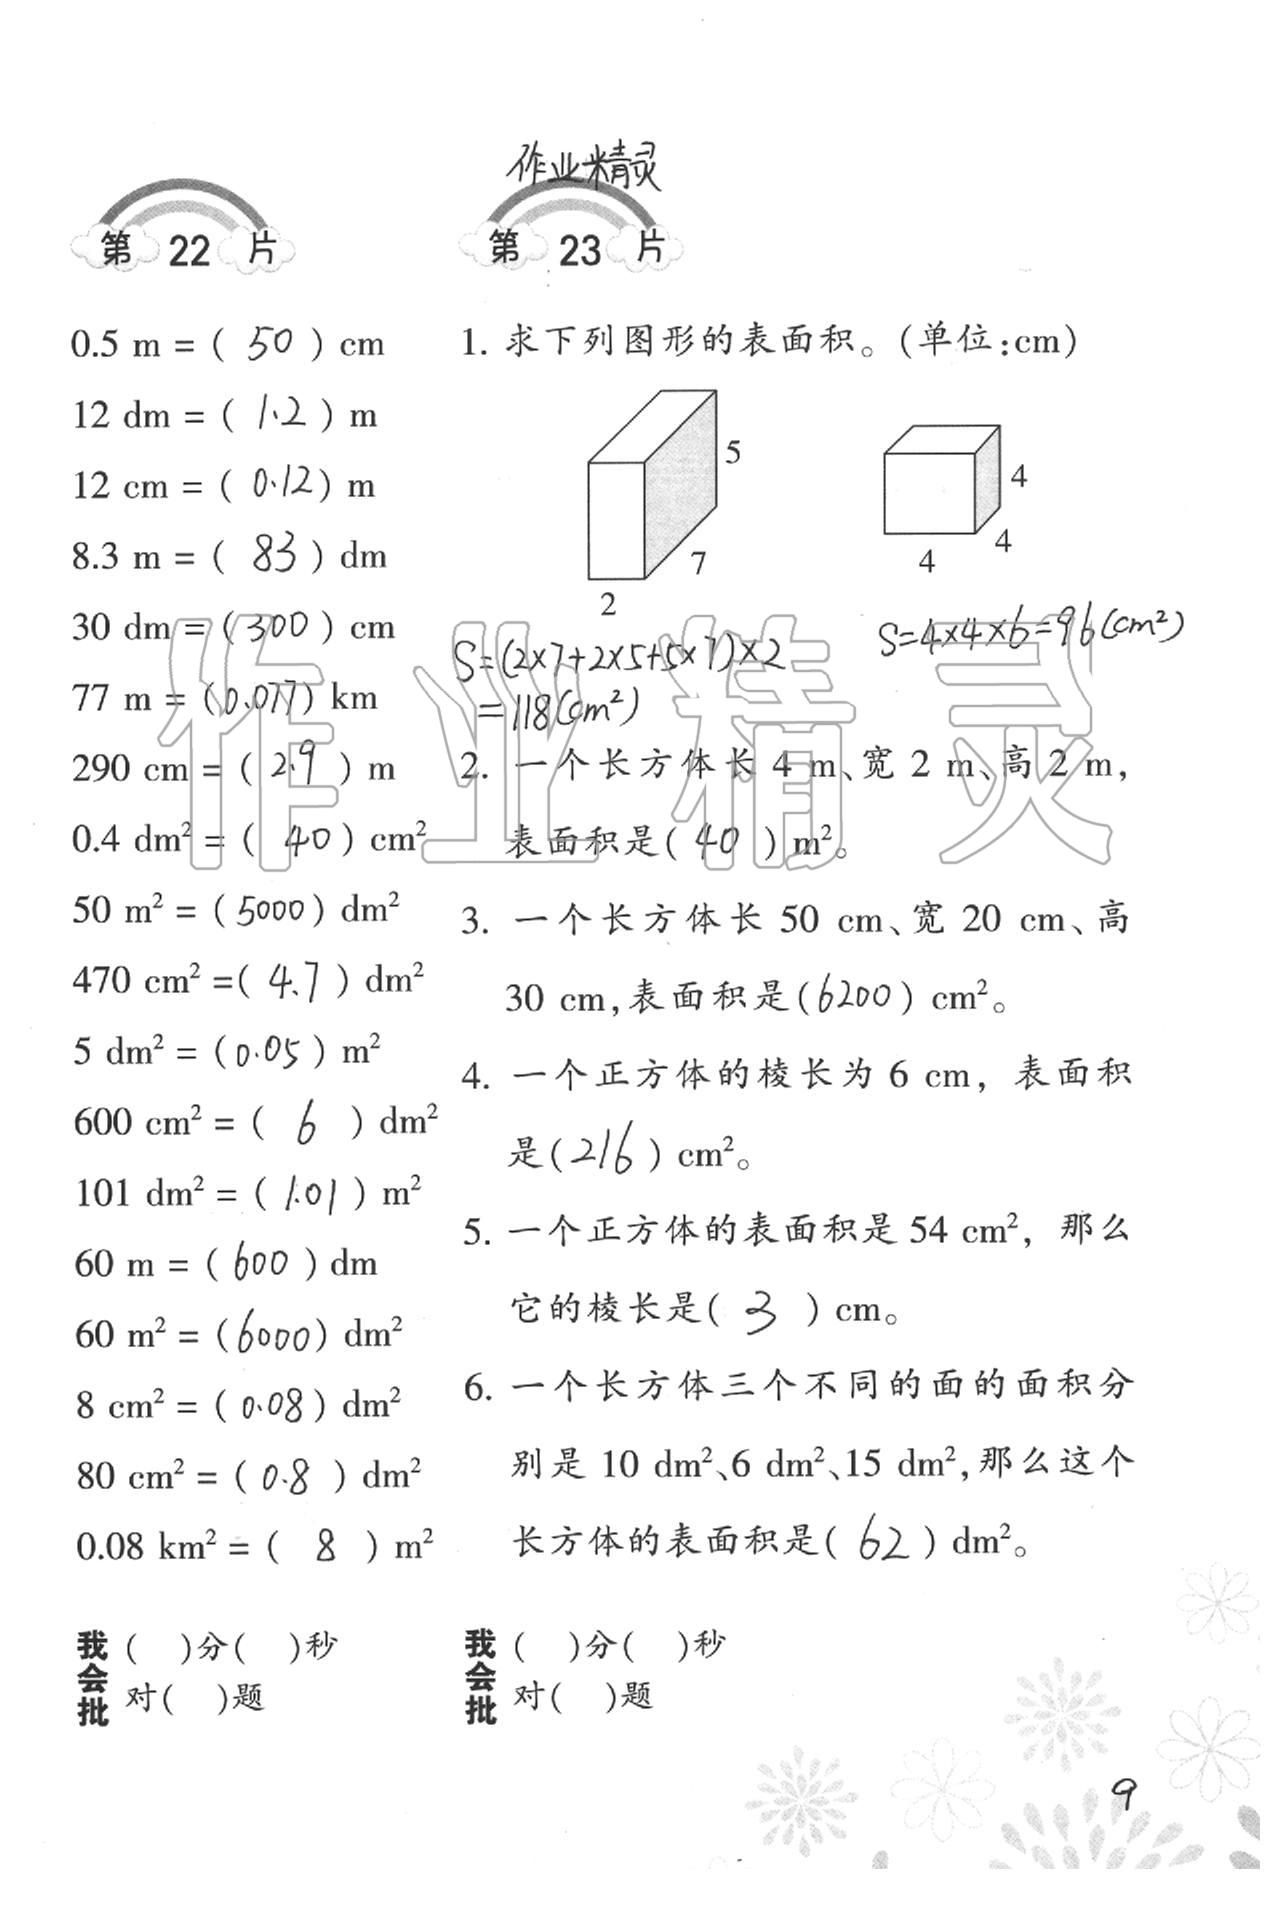 作业精灵
第 22 片
0.5 m = ( 50 ) cm
12 dm = ( 1.2 ) m
12 cm = ( 0.12 ) m
8.3 m = ( 83 ) dm
30 dm = ( 300 ) cm
77 m = ( 0.077 ) km
290 cm = ( 2.9 ) m
0.4 dm² = ( 40 ) cm²
50 m² = ( 5000 ) dm²
470 cm² = ( 4.7 ) dm²
5 dm² = ( 0.05 ) m²
600 cm² = ( 6 ) dm²
101 dm² = ( 1.01 ) m²
60 m = ( 600 ) dm
60 m² = ( 6000 ) dm²
8 cm² = ( 0.08 ) dm²
80 cm² = ( 0.8 ) dm²
0.08 km² = ( 8 ) m²
我会批
( )分( )秒
对( )题
第 23 片
1. 求下列图形的表面积。(单位:cm)
5
7
2
4
4
4
S=(2×7+2×5+5×7)×2
=118(cm²)
S=4×4×6=96(cm²)
2. 一个长方体长 4 m、宽 2 m、高 2 m,
表面积是( 40 ) m²。
3. 一个长方体长 50 cm、宽 20 cm、高
30 cm,表面积是( 6200 ) cm²。
4. 一个正方体的棱长为 6 cm, 表面积
是( 216 ) cm²。
5. 一个正方体的表面积是 54 cm², 那么
它的棱长是( 3 ) cm。
6. 一个长方体三个不同的面的面积分
别是 10 dm²、6 dm²、15 dm²,那么这个
长方体的表面积是( 62 ) dm²。
我会批
( )分( )秒
对( )题
作业精灵
9